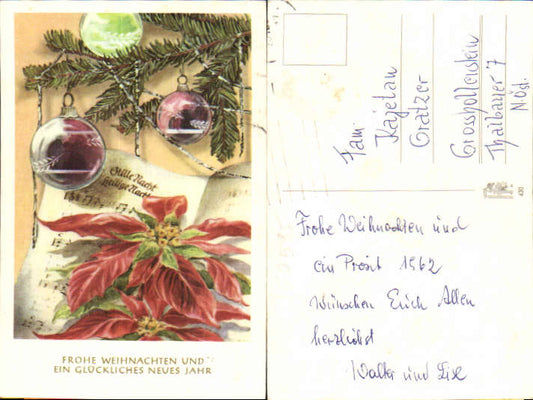 Stille Nacht
heilige Nacht
FROHE WEIHNACHTEN UND
EIN GLÜCKLICHES NEUES JAHR
Fam.
Kajetan
Gratzer
Grosshollenstein
Thalbauer 7
N.Öst.
420
Frohe Weihnachten und
ein Prosit 1962
wünschen Euch Allen
herzlichst
Walter und Lise